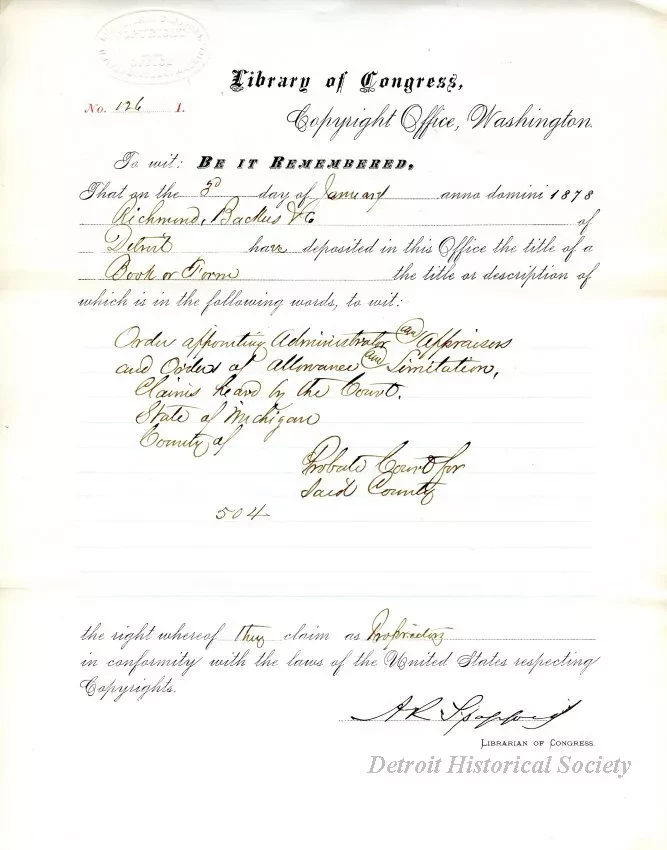 Library of Congress,
No. 126 I.
Copyright Office, Washington.
To wit: BE IT REMEMBERED,
That on the 3d day of January anno domini 1878
Richmond, Backus & Co of
Detroit have deposited in this Office the title of a
Book or Form the title or description of
which is in the following words, to wit:
Order appointing Administrator Appraisers
and Order of Allowance Limitation,
Claims heard by the Court.
State of Michigan
County of
Probate Court for
Said County
504
the right whereof they claim as Proprietors
in conformity with the laws of the United States respecting
Copyrights.
A R Spofford
LIBRARIAN OF CONGRESS.
Detroit Historical Society